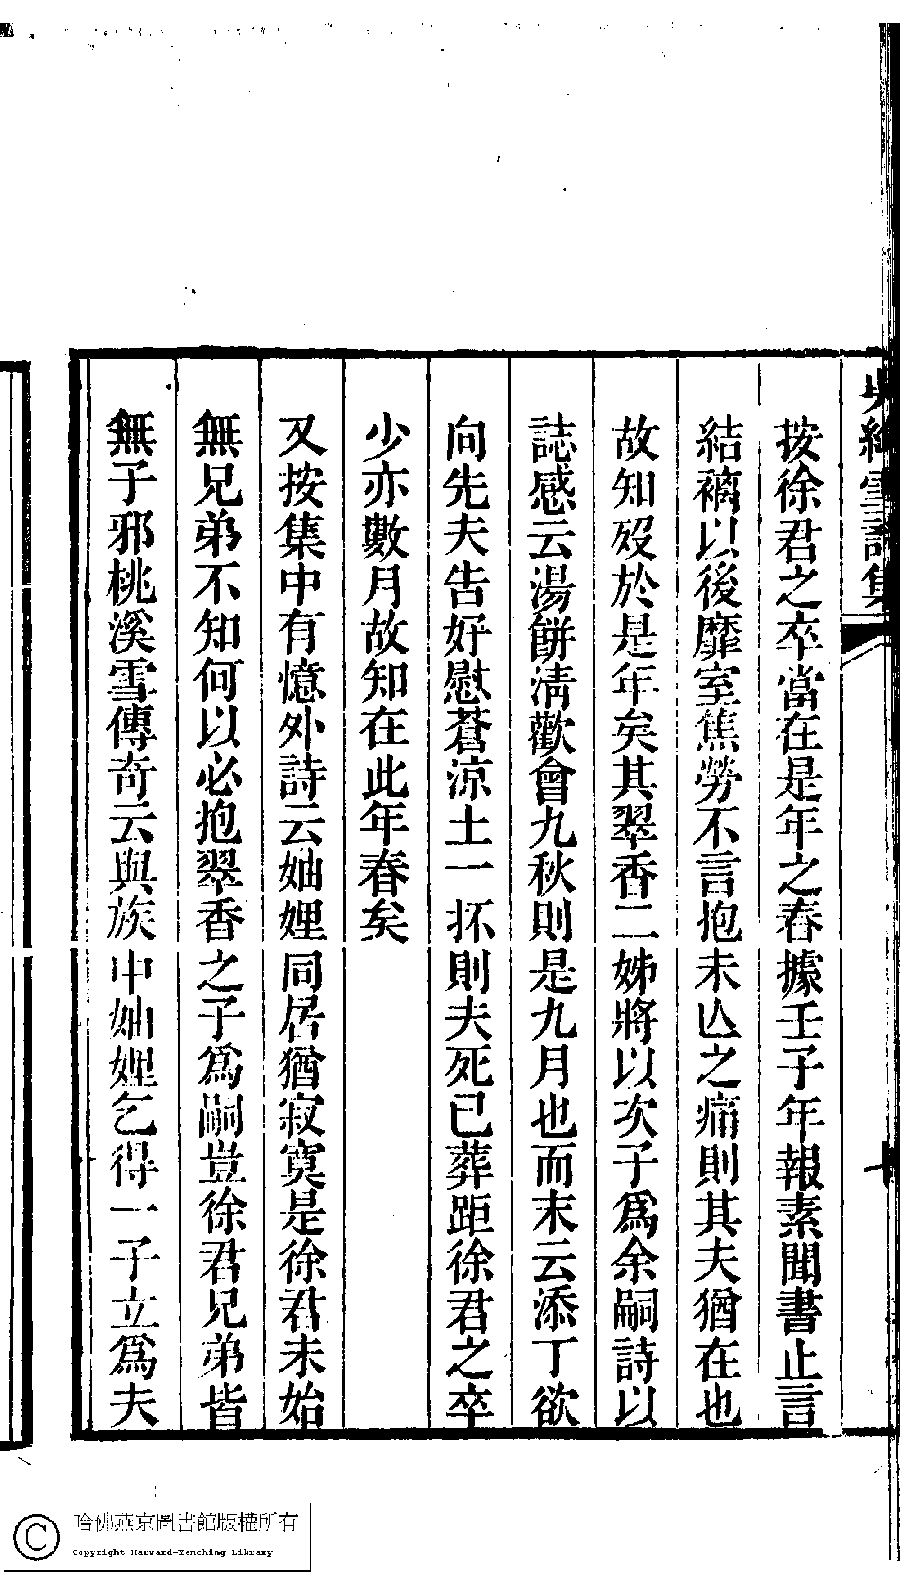 吳絳雪詩集
按徐君之卒當在是年之春據壬子年報素聞書止言
結褵以後靡室焦勞不言抱未亾之痛則其夫猶在也
故知歿於是年矣其翠香二姊將以次子爲余嗣詩以
誌感云湯餅淸歡會九秋則是九月也而末云添丁欲
向先夫告好慰蒼涼土一抔則夫死已葬距徐君之卒
少亦數月故知在此年春矣
又按集中有憶外詩云妯娌同居猶寂寞是徐君未始
無兄弟不知何以必抱翠香之子爲嗣豈徐君兄弟皆
無子邪桃溪雪傳奇云與族中妯娌乞得一子立爲夫
哈佛燕京圖書館版權所有
Copyright Harvard-Yenching Library